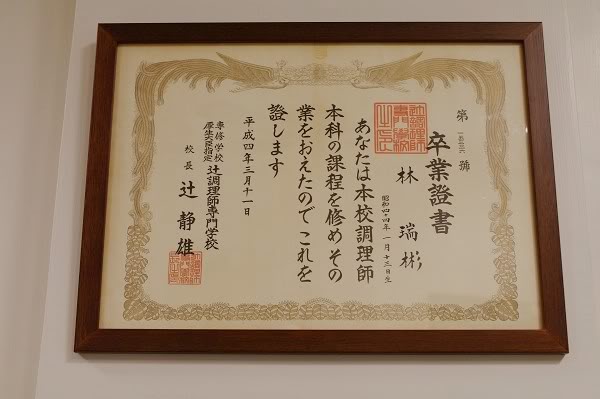 卒業證書
林 瑞彬
昭和四十四年一月十三日生
あなたは本校調理師
本科の課程を修めその
業をおえたのでこれを
證します
平成四年三月十一日
専修学校
厚生大臣指定
辻調理師専門学校
校長 辻静雄